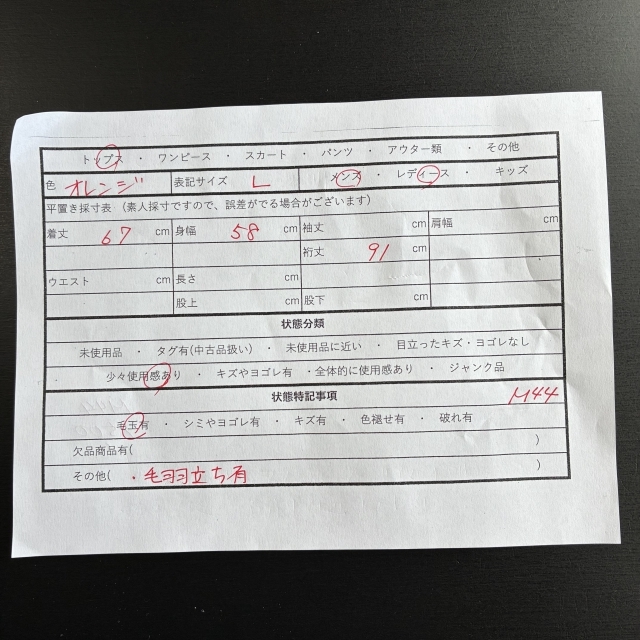 トップス ・ ワンピース ・ スカート ・ パンツ ・ アウター類 ・ その他
色 オレンジ 表記サイズ L メンズ ・ レディース ・ キッズ
平置き採寸表 (素人採寸ですので、誤差がでる場合がございます)
着丈 67 cm 身幅 58 cm 袖丈 cm 肩幅
裄丈 91 cm
ウエスト cm 長さ cm
股上 cm 股下 cm
状態分類
未使用品 ・ タグ有(中古品扱い) ・ 未使用品に近い ・ 目立ったキズ・ヨゴレなし
少々使用感あり ・ キズやヨゴレ有 ・全体的に使用感あり ・ ジャンク品
状態特記事項 M44
毛玉有 ・ シミやヨゴレ有 ・ キズ有 ・ 色褪せ有 ・ 破れ有
欠品商品有( )
その他( ・毛羽立ち有 )